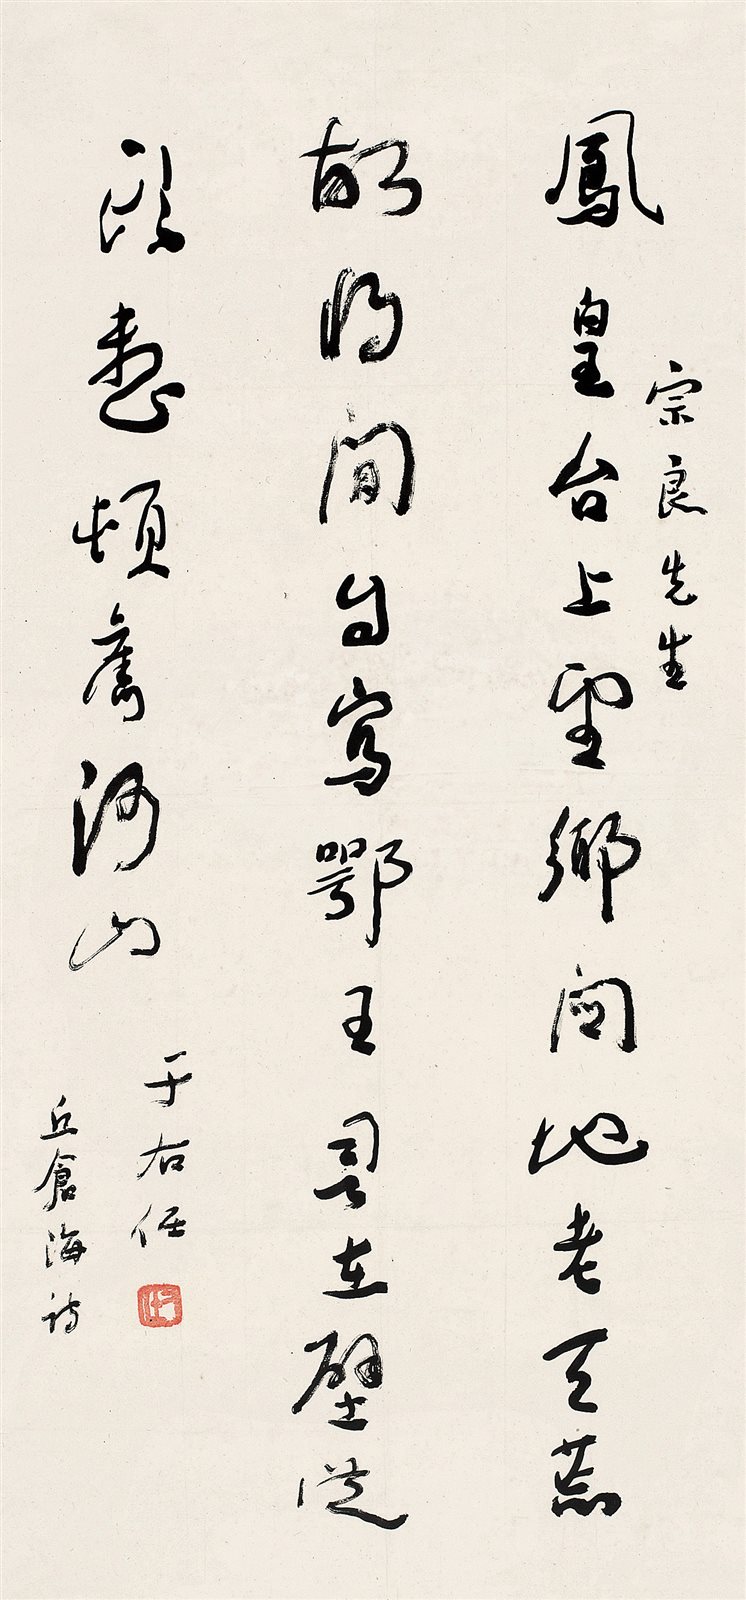 宗良先生
鳳皇台上望鄉関地老天荒
故將閒自寫鄂王詞在壁從
頭整頓舊河山
于右任
丘倉海詩